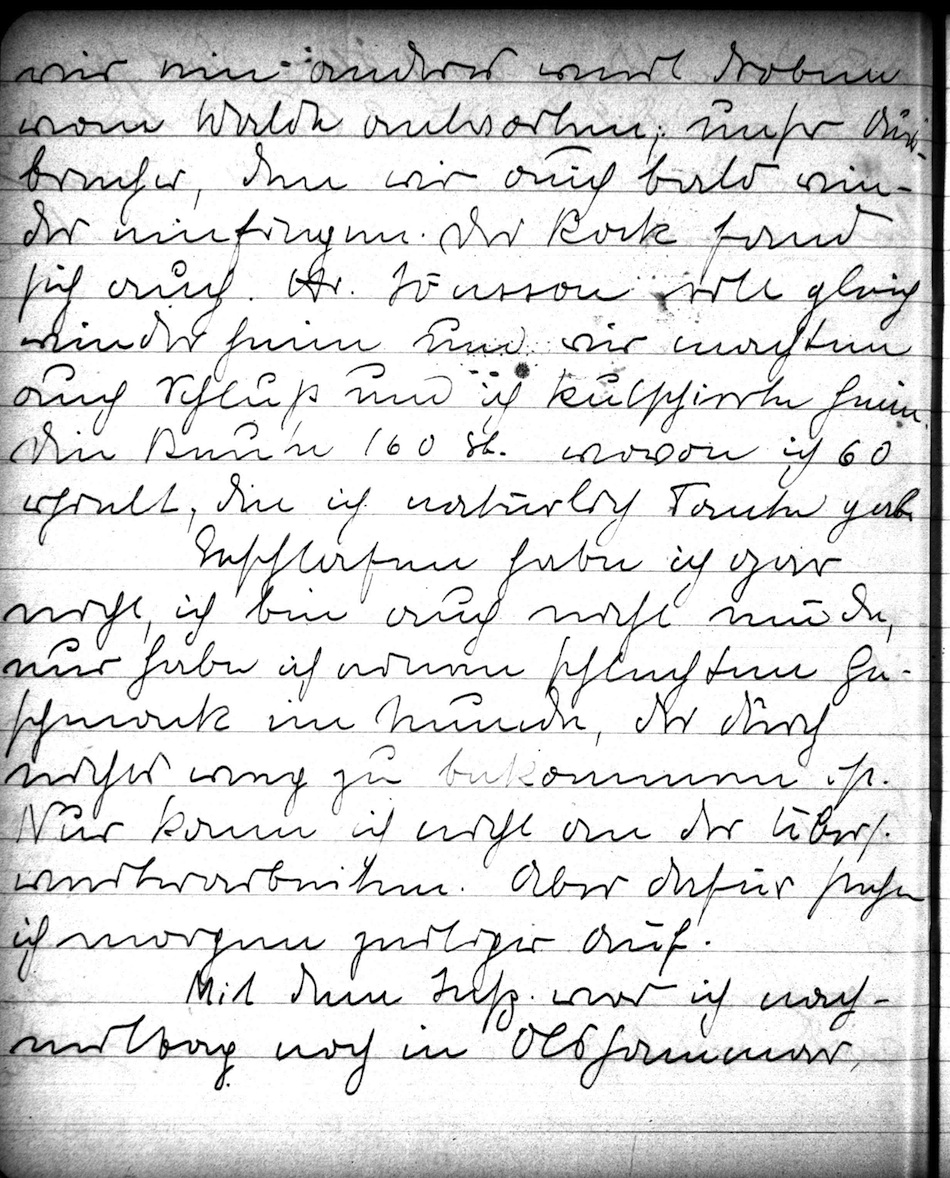 wie ein anderer weit droben
vom Walde antworten; unser Aus-
brecher, den wir auch bald wie-
der einfingen. Der Bock fand
sich auch. Hr. Jönsson will gleich
wieder heim und wir machten
auch Schluß und ich kutschierte heim.
Die Beute 160 St. wovon ich 60
erhielt, die ich natürlich Tante gab.
Entschlafen habe ich gar
nicht, ich bin auch nicht müde,
nur habe ich einen schlechten Ge-
schmack im Munde, der durch
nichts weg zu bekommen ist.
Nur kann ich nicht an der Übers.
weiterarbeiten. Aber dafür stehe
ich morgen zeitiger auf.
Mit dem war ich nach-
mittag noch in Olshammar,